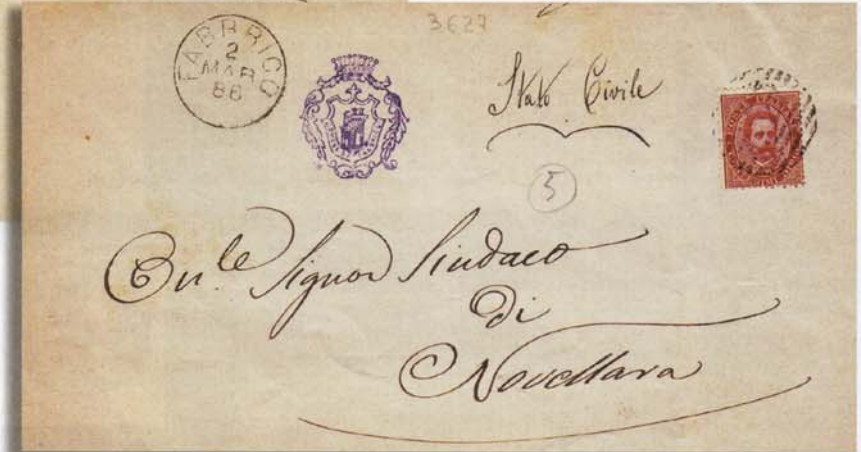 3627
FABBRICO
2
MAR
86
Stato Civile
5
On.le Signor Sindaco
di
Novellara